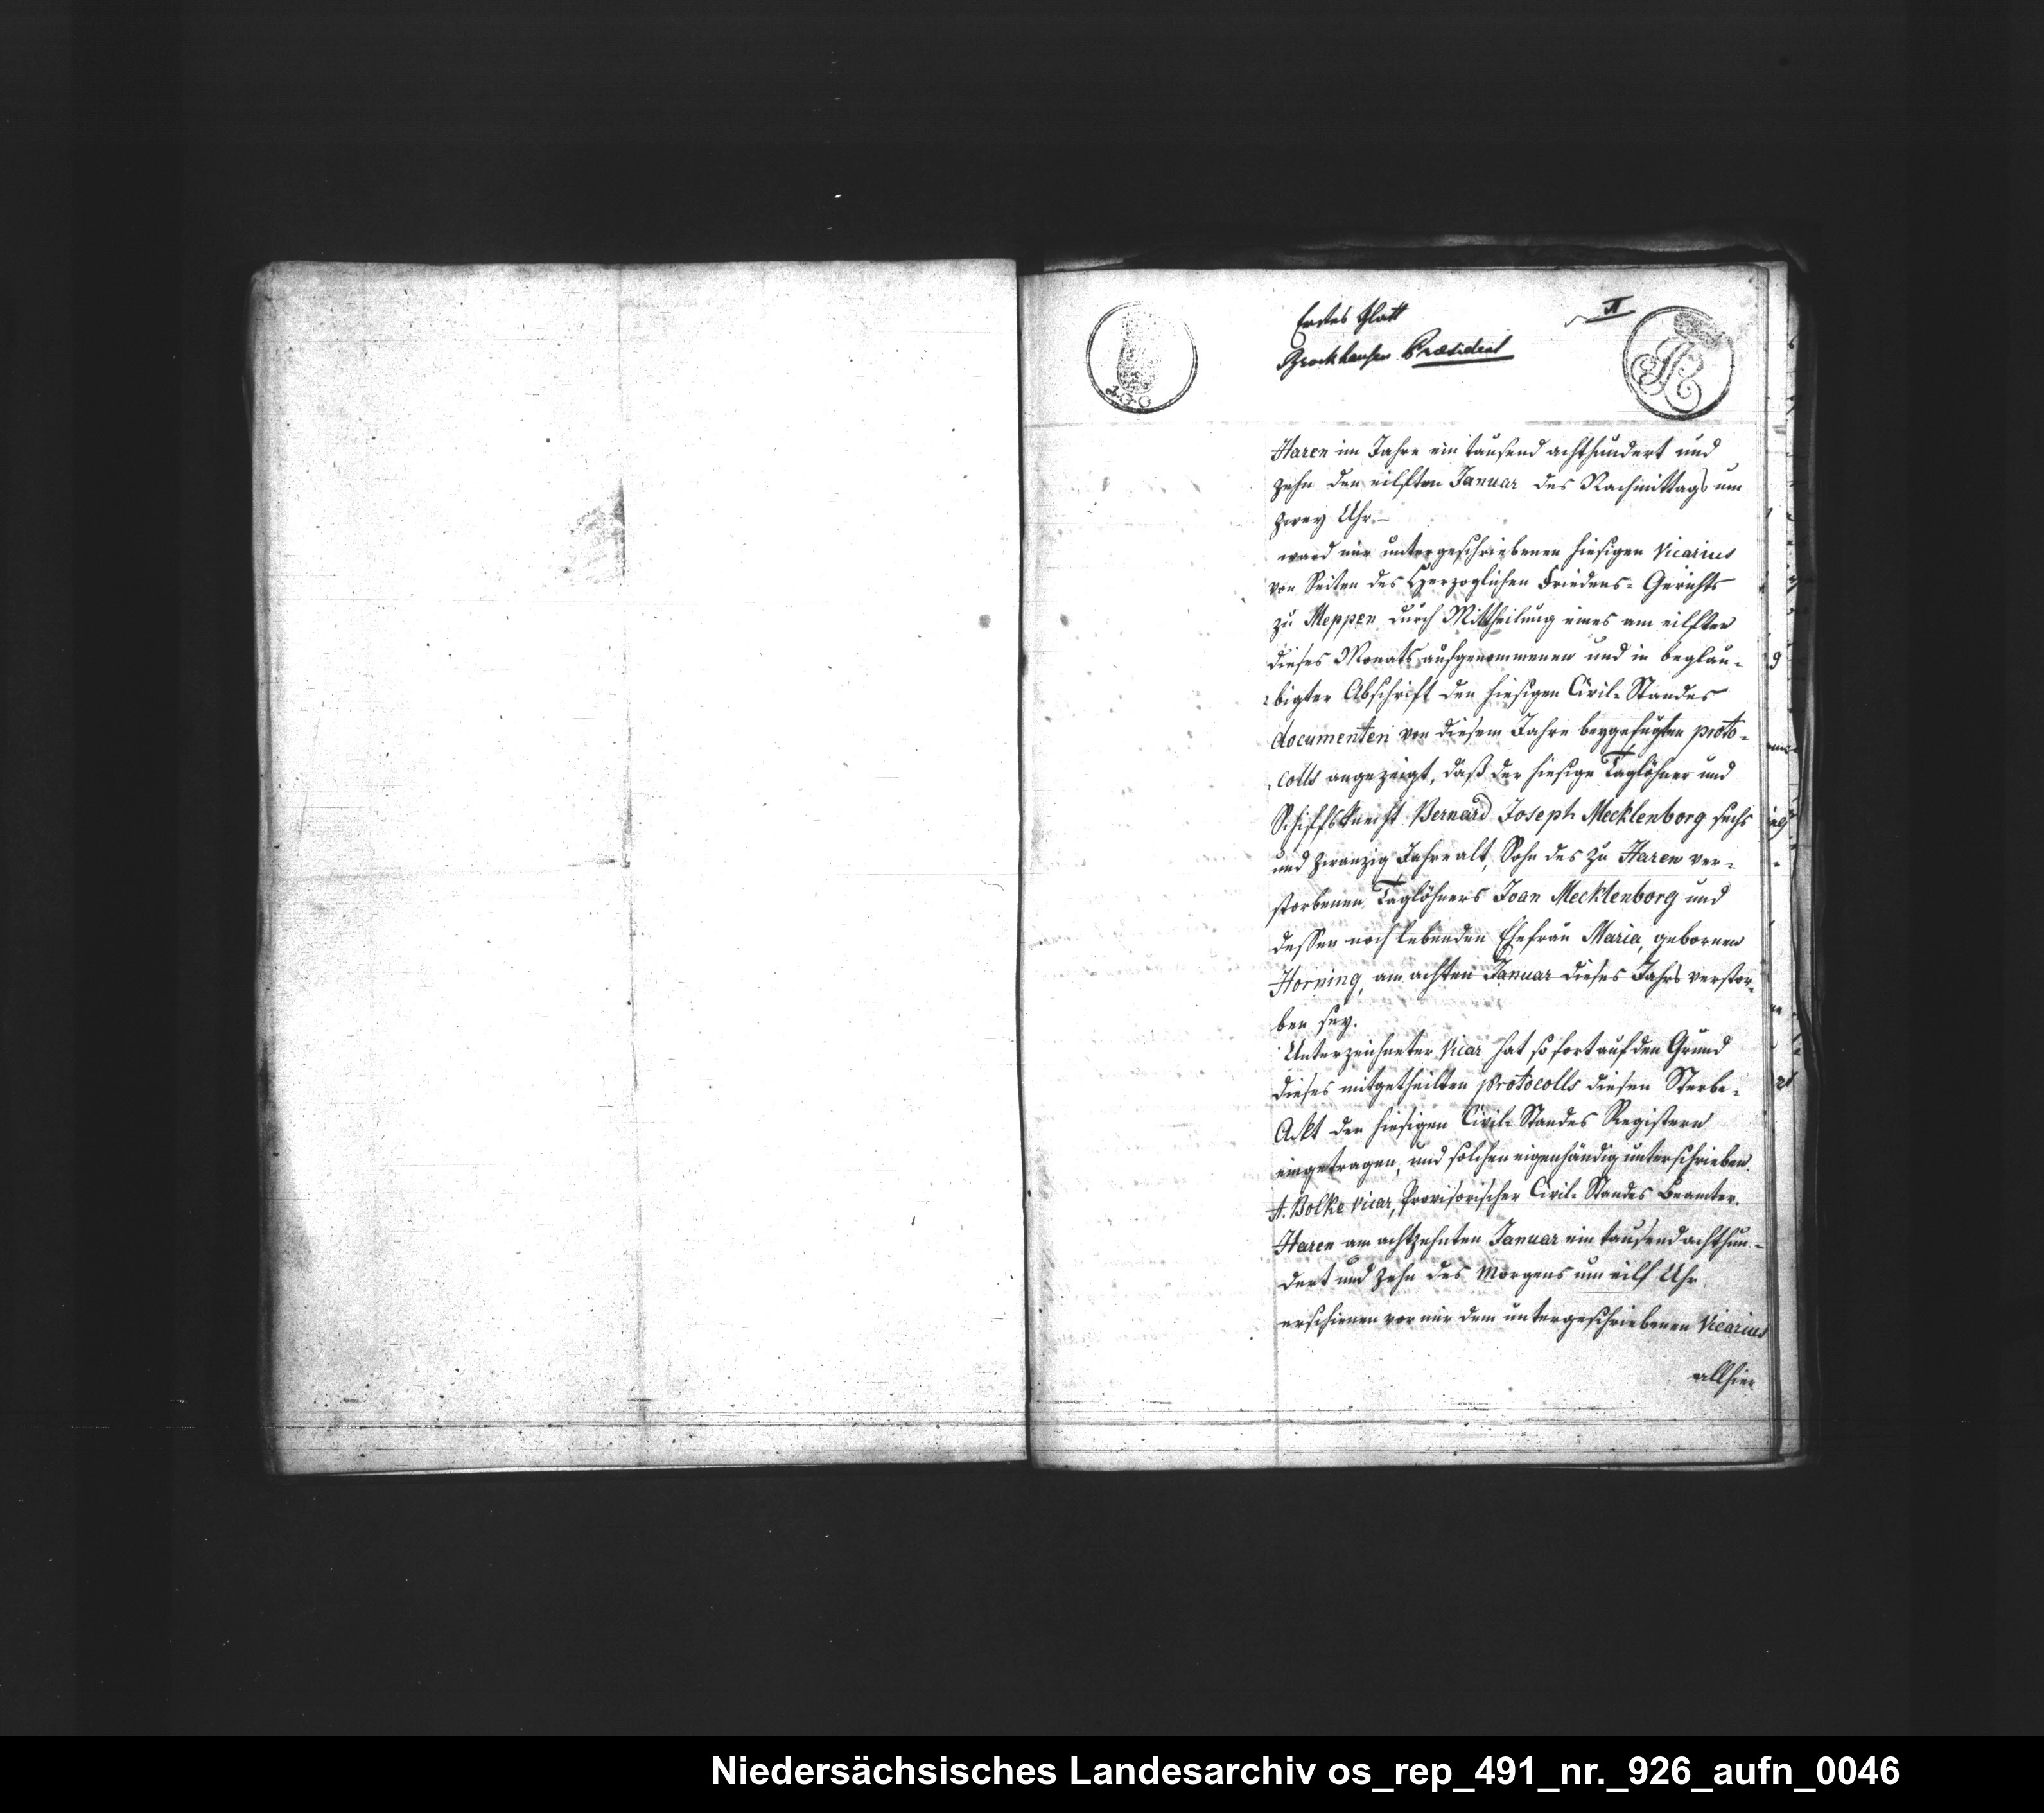 Erstes Blatt
Brockhausen Præsident
II
Haren im Jahre ein tausend achthundert und
zehn den eilften Januar des Nachmittags um
zwey Uhr.–
ward mir untergeschriebenen hiesigen Vicarius
von Seiten des Herzoglichen Friedens-Gerichts
zu Meppen durch Mittheilung eines am eilften
dieses Monats aufgenommenen und in beglau-
bigter Abschrift den hiesigen Civil-Standes
documenten von diesem Jahre beygefügten proto-
colls angezeigt, daß der hiesige Taglöhner und
Schiffsknecht Bernard Joseph Mecklenborg sechs
und zwanzig Jahre alt, Sohn des zu Haren ver-
storbenen Taglöhners Joan Mecklenborg und
dessen noch lebenden Ehefrau Maria, gebornen
Horning, am achten Januar dieses Jahrs verstor-
ben sey.
Unterzeichneter Vicar hat so fort auf den Grund
dieses mitgetheilten protocolls diesen Sterbe-
Akt den hiesigen Civil-Standes Registern
eingetragen, und solchen eigenhändig unterschrieben.
A. Bolke vicar, Provisorischer Civil-Standes Beamter.
Haren am achtzehnten Januar ein tausend achthun-
dert und zehn des Morgens um eilf Uhr
erschienen vor mir dem untergeschriebenen Vicarius
allhier
200
Niedersächsisches Landesarchiv os_rep_491_nr._926_aufn_0046